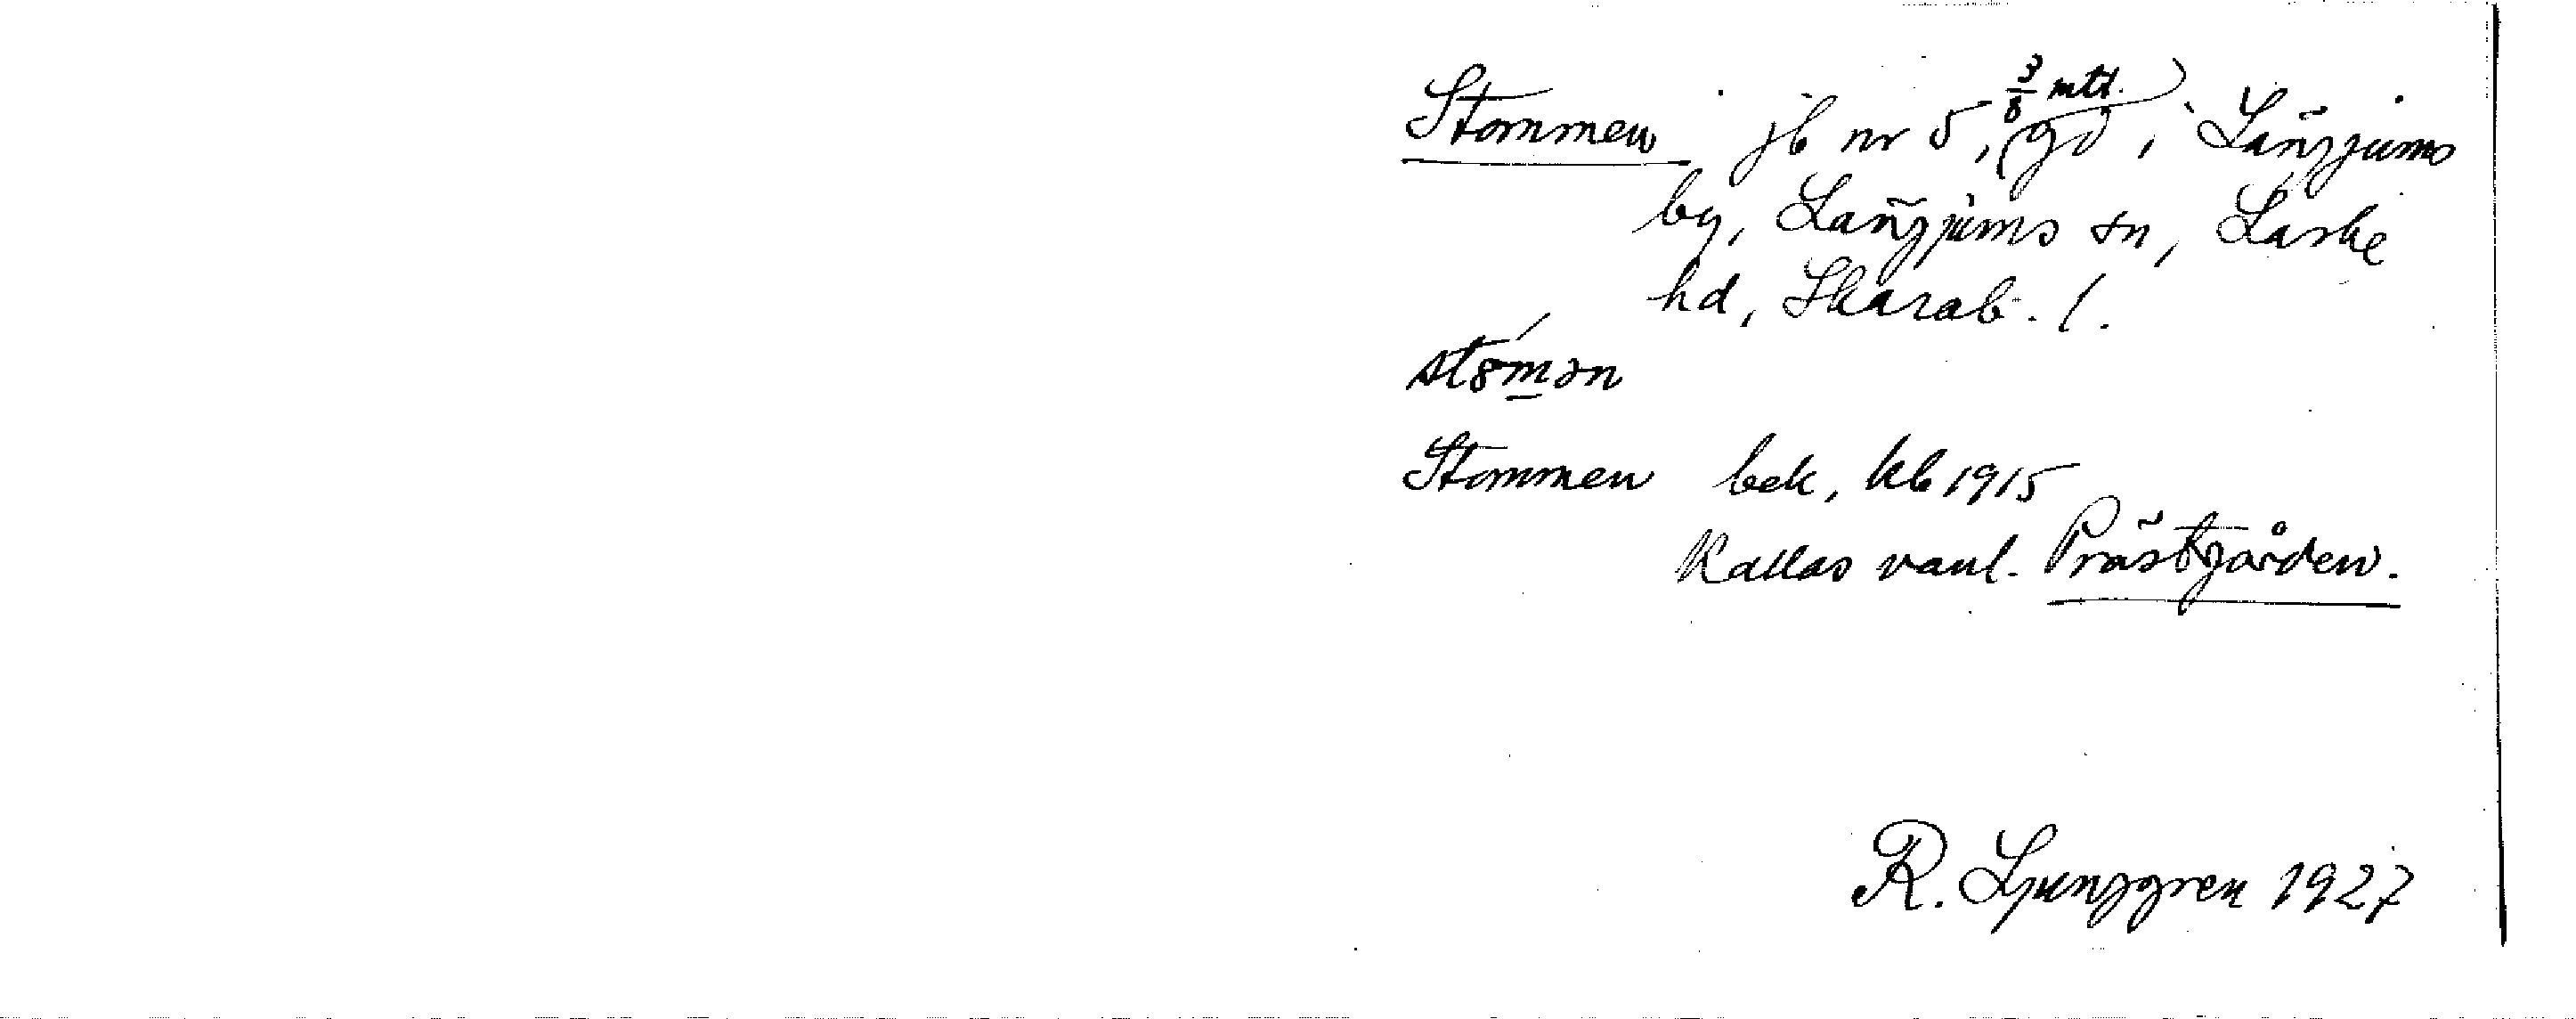 Stommen jb nr 5, (3/8 mtl. gd) i Längjums
by, Längjums sn, Laske
hd, Skarab. l.
stȣmən
Stommen bek, kb 1915
Kallas vanl. Prästgården.
R. Ljunggren 1927